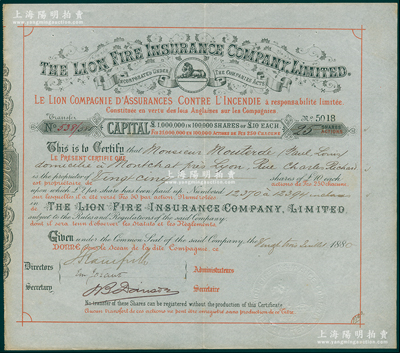 上海陽明拍賣
THE LION FIRE INSURANCE COMPANY, LIMITED.
INCORPORATED UNDER THE COMPANIES ACTS
LE LION COMPAGNIE D'ASSURANCES CONTRE L'INCENDIE à responsabilité limitée.
Constituée en vertu des lois Anglaises sur les Compagnies.
Transfer No 5918
CAPITAL £1,000,000 in 100,000 SHARES OF £10 EACH
25 SHARES ACTIONS
This is to Certify that Monsieur Mouterde Paul Louis
LE PRÉSENT CERTIFIE QUE
domicilié à Montchat près Lyon Rue Charles Richard
is the proprietor of Vingt Cinq shares of £10 each
est propriétaire de actions de Frs 250 chacune
upon which £ per share has been paid up. Numbered 12370 à 12394
sur laquelle il a été versé Frs 50 par action. Numérotées
IN THE LION FIRE INSURANCE COMPANY, LIMITED,
subject to the Rules and Regulations of the said Company.
dont il sera tenu d'observer les Statuts et les Règlements.
Given under the Common Seal of the said Company, the 1880
DONNÉ sous le Sceau de la dite Compagnie, ce
Directors Administrateurs
Secretary Secrétaire
No transfer of these Shares can be registered without the production of this Certificate.
Aucun transfert de ces actions ne peut être enregistré sans production de ce Titre.
上海陽明拍賣